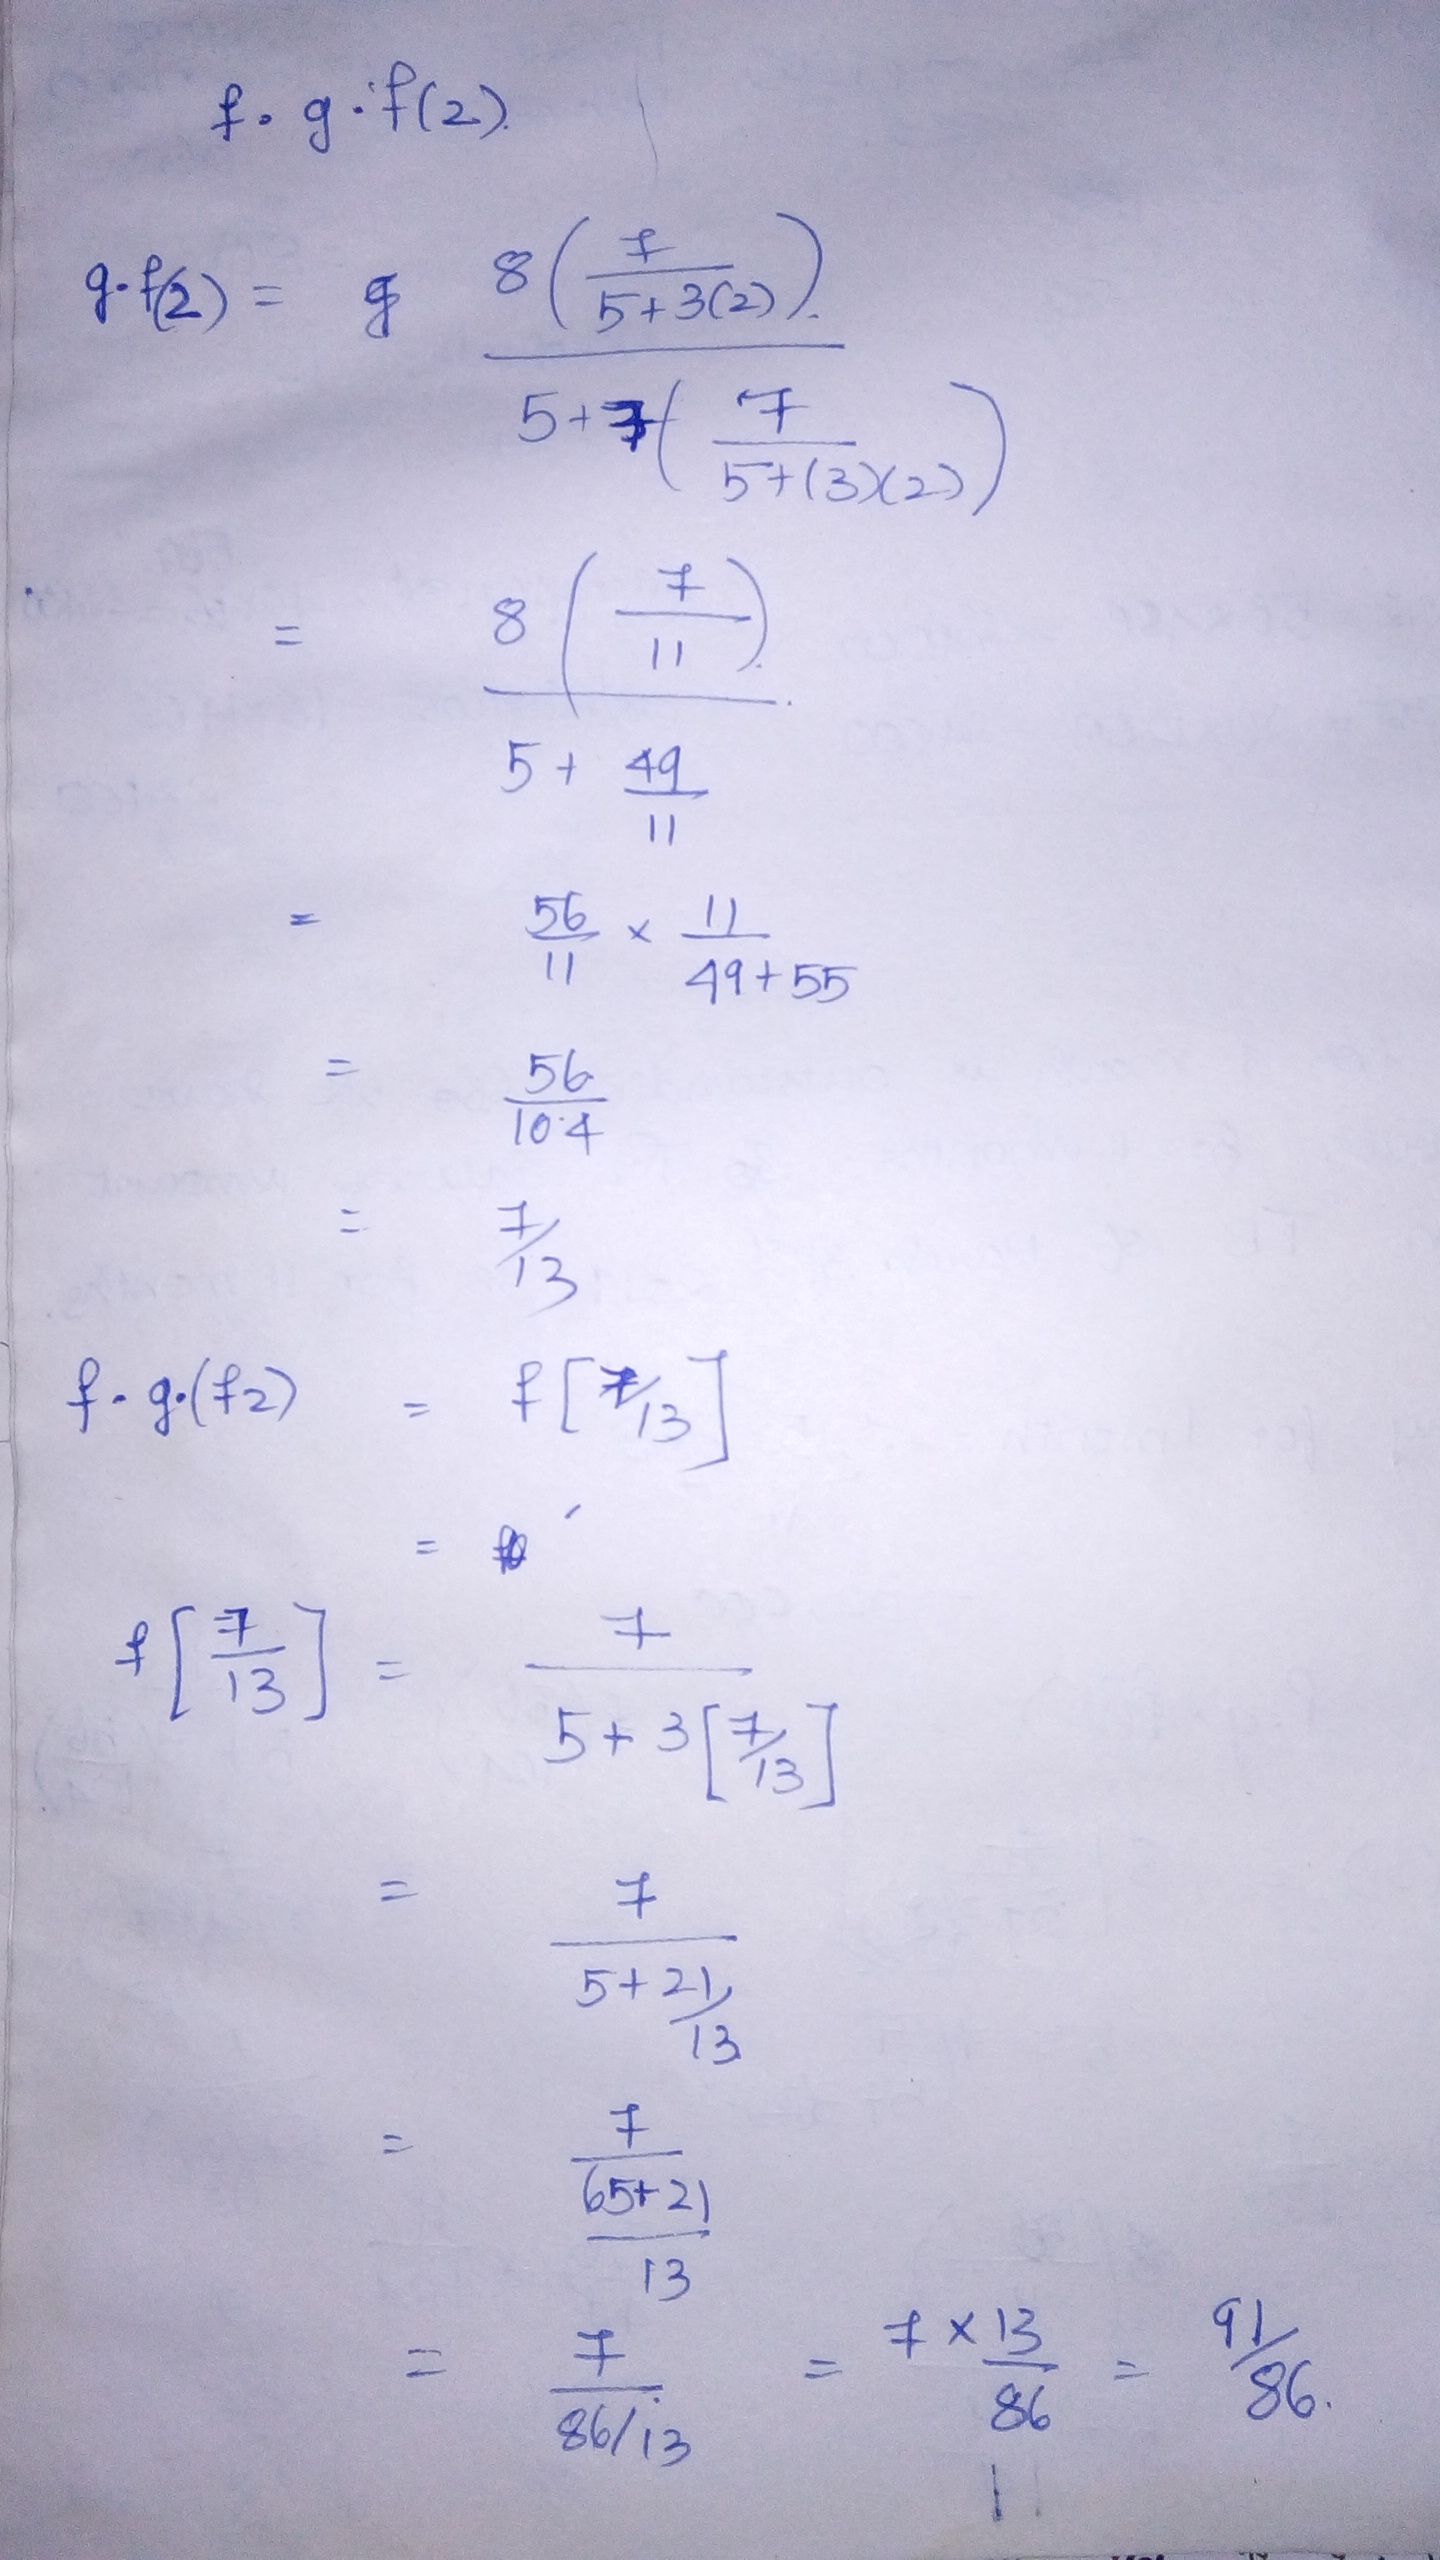 f. g. f(2).
g.f(2) = g 8(7/5+3(2)) / 5+7(7/5+(3)(2))
= 8(7/11) / 5+ 49/11
= 56/11 × 11/49+55
= 56/104
= 7/13
f. g.(f2) = f[7/13]
=
f[7/13] = 7 / 5+3[7/13]
= 7 / 5+21/13
= 7 / 65+21/13
= 7 / 86/13 = 7×13/86 = 91/86.